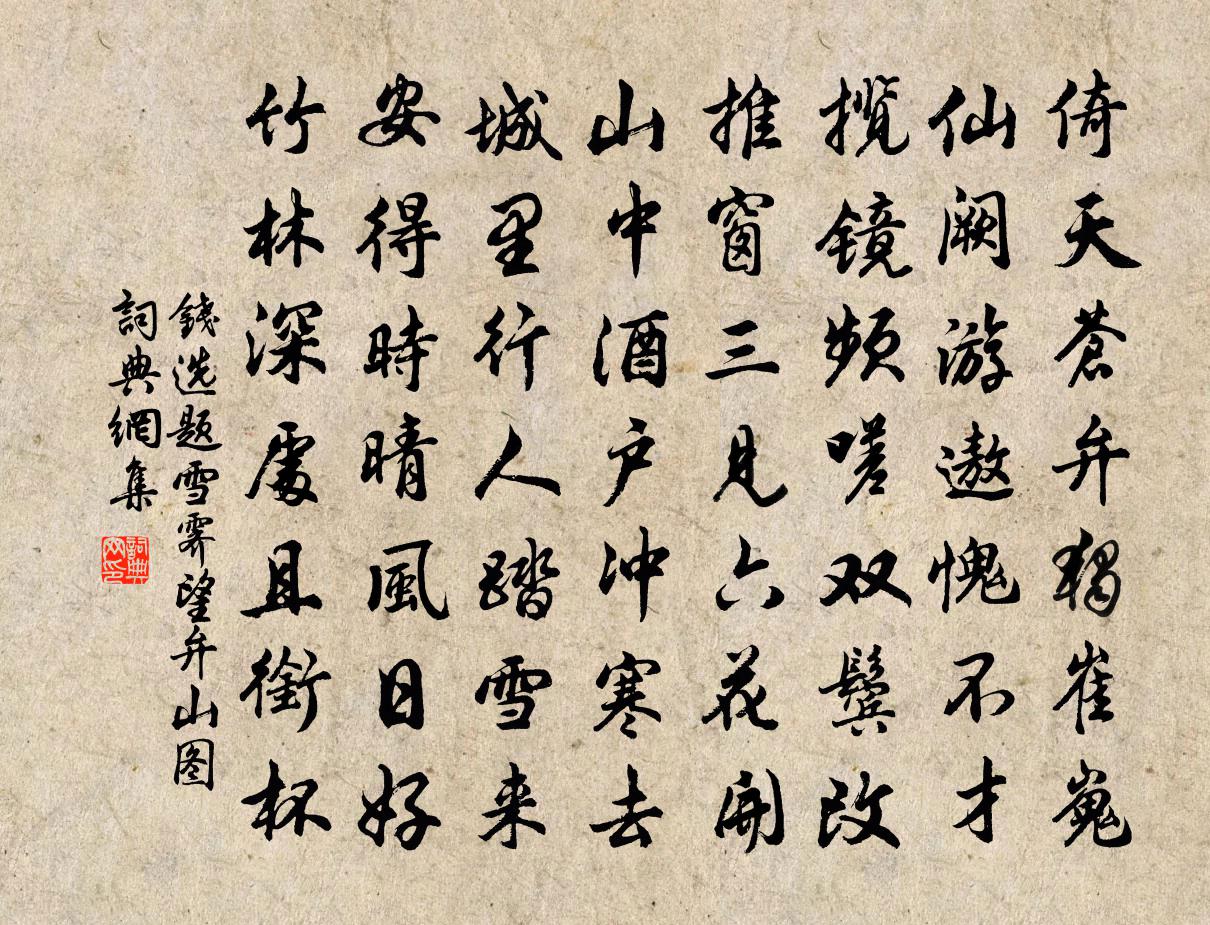 倚天蒼弁独崔嵬
仙阙游遨愧不才
揽镜频嗟双鬓改
推窗三見六花開
山中酒户冲寒去
城里行人踏雪来
安得時晴風日好
竹林深處且銜杯
錢选題雪霽望弁山图
詞典網集
詞典网印